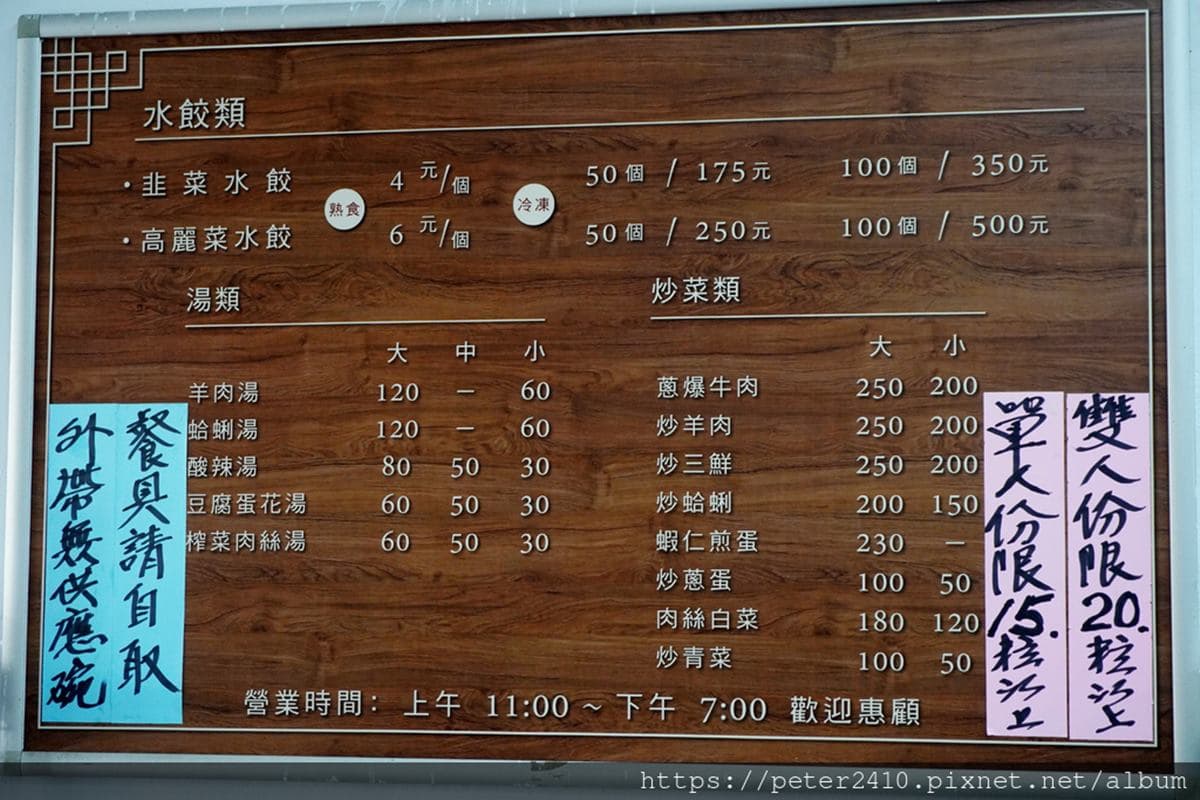 水餃類
・韭菜水餃 熟食 4元/個 冷凍 50個 / 175元 100個 / 350元
・高麗菜水餃 6元/個 50個 / 250元 100個 / 500元
湯類
大 中 小
羊肉湯 120 — 60
蛤蜊湯 120 — 60
酸辣湯 80 50 30
豆腐蛋花湯 60 50 30
榨菜肉絲湯 60 50 30
炒菜類
大 小
蔥爆牛肉 250 200
炒羊肉 250 200
炒三鮮 250 200
炒蛤蜊 200 150
蝦仁煎蛋 230 —
炒蔥蛋 100 50
肉絲白菜 180 120
炒青菜 100 50
營業時間：上午 11:00 ~ 下午 7:00 歡迎惠顧
餐具請自取
外帶無供應碗
雙人份限20.粒以上
單人份限15.粒以上
https://peter2410.pixnet.net/album